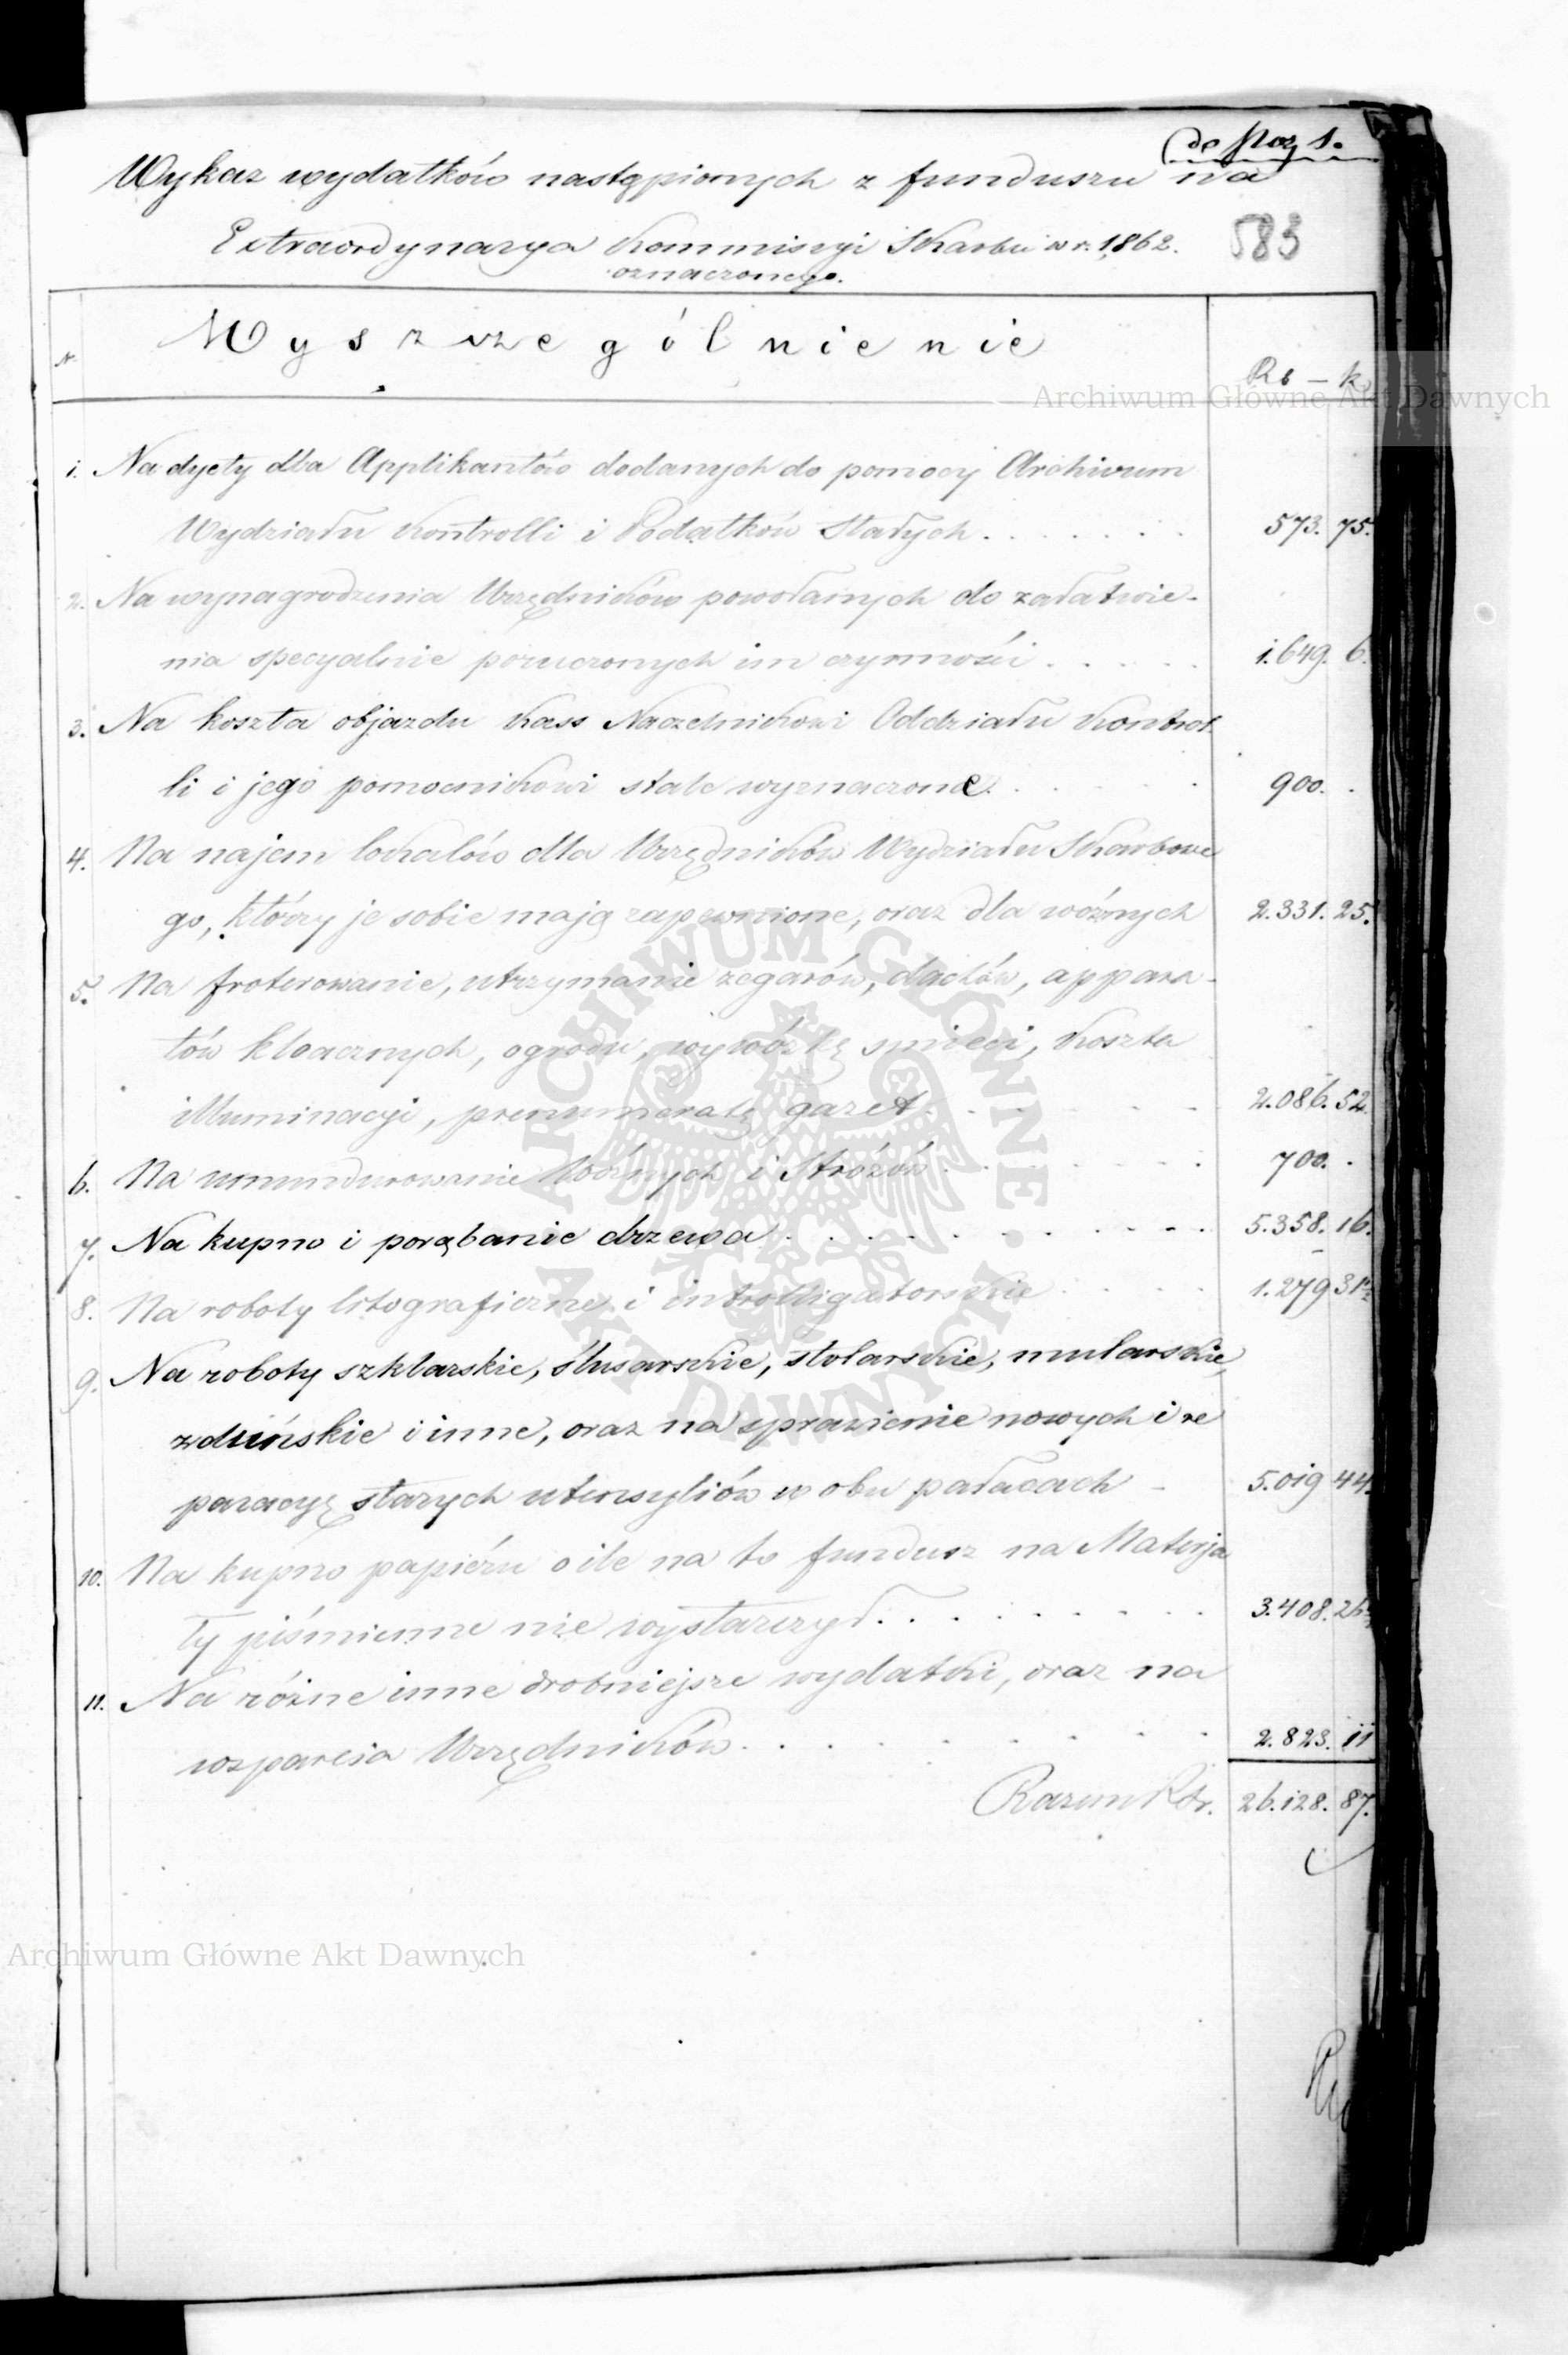 do Poz 1.
Wykaz wydatków nastąpionych z funduszu na
583
Extraordynarya Kommissyi Skarbu w r. 1862.
oznaczonego.
N.
Wyszczególnienie
Rs – k.
Archiwum Główne Akt Dawnych
1. Na dyety dla Applikantów dodanych do pomocy Archiwum
Wydziału Kontrolli i Podatków Stałych . . . . . . . 573. 75.
2. Na wynagrodzenia Urzędników powołanych do załatwie-
nia specyalnie poruczonych im czynności . . . . . 1.649. 6.
3. Na koszta objazdu Kass Naczelnikowi Oddziału Kontrol-
li i jego pomocnikowi stale wyznaczone . . . . . 900. .
4. Na najem lokalów dla Urzędników Wydziału Skarbowe
go, którzy je sobie mają zapewnione, oraz dla woźnych 2.331. 25.
5. Na froterowanie, utrzymanie zegarów, dachów, appara-
tów kloacznych, ogrodu, wywózkę śmieci, koszta
illuminacyi, prenumeratę gazet . . . . . . . 2.086. 52.
6. Na umundurowanie Woźnych i Stróżów . . . . . . . 700. .
7. Na kupno i porąbanie drzewa . . . . . . . . . . . 5.358. 16.
8. Na roboty litograficzne i introlligatorskie . . . . . 1.279 31½
9. Na roboty szklarskie, ślusarskie, stolarskie, mularskie,
zduńskie i inne, oraz na sprawienie nowych i re
paracyę starych utensyliów w obu pałacach – 5.019 44.
10. Na kupno papiéru o ile na to fundusz na Materja
ły piśmienne nie wystarczył . . . . . . . . 3.408. 26½
11. Na różne inne drobniejsze wydatki, oraz na
wsparcia Urzędników . . . . . . . . . 2.823. 11
Razem Rsr. 26.128. 87.
ARCHIWUM GŁÓWNE • AKT DAWNYCH •
Archiwum Główne Akt Dawnych